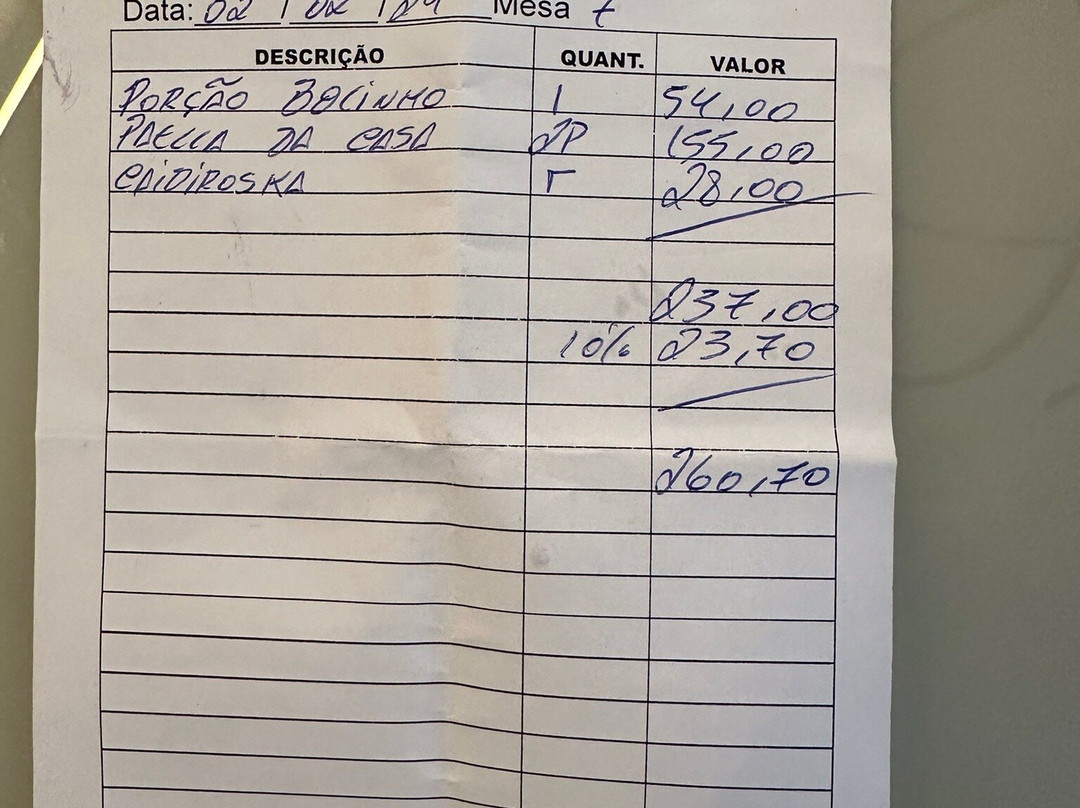 Data: 02 / 02 / 24 Mesa 7
DESCRIÇÃO QUANT. VALOR
PORÇÃO BOLINHO 1 54,00
PAELLA DA CASA 2P 155,00
CAIPIROSKA 1 28,00
237,00
10% 23,70
260,70